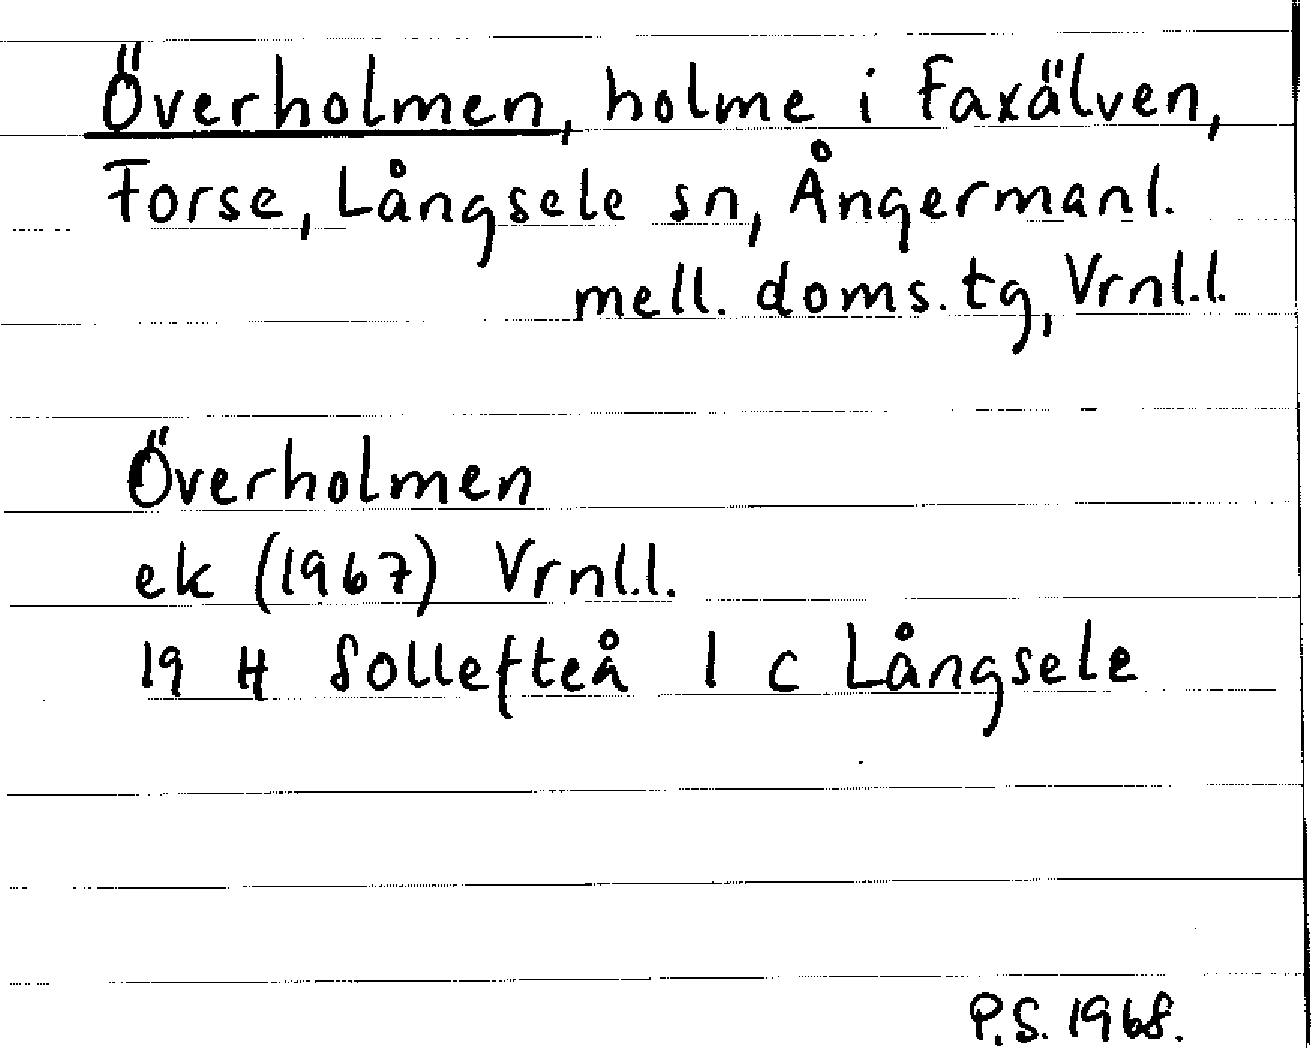 Överholmen, holme i Faxälven,
Forse, Långsele sn, Ångermanl.
mell. doms. tg, Vrnl.l.
Överholmen
ek (1967) Vrnl.l.
19 H Sollefteå 1 c Långsele
P.S. 1968.